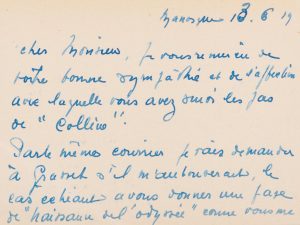 Manosque 13. 6 19
cher Monsieur, je vous remercie de
votre bonne sympathie et de l'affection
avec laquelle vous avez suivi les pas
de "Colline".
Par le même courrier je vais demander
à Grasset s'il m'autoriserait, le
cas echéant a vous donner une
de "naissance de l'odyssée" comme vous me